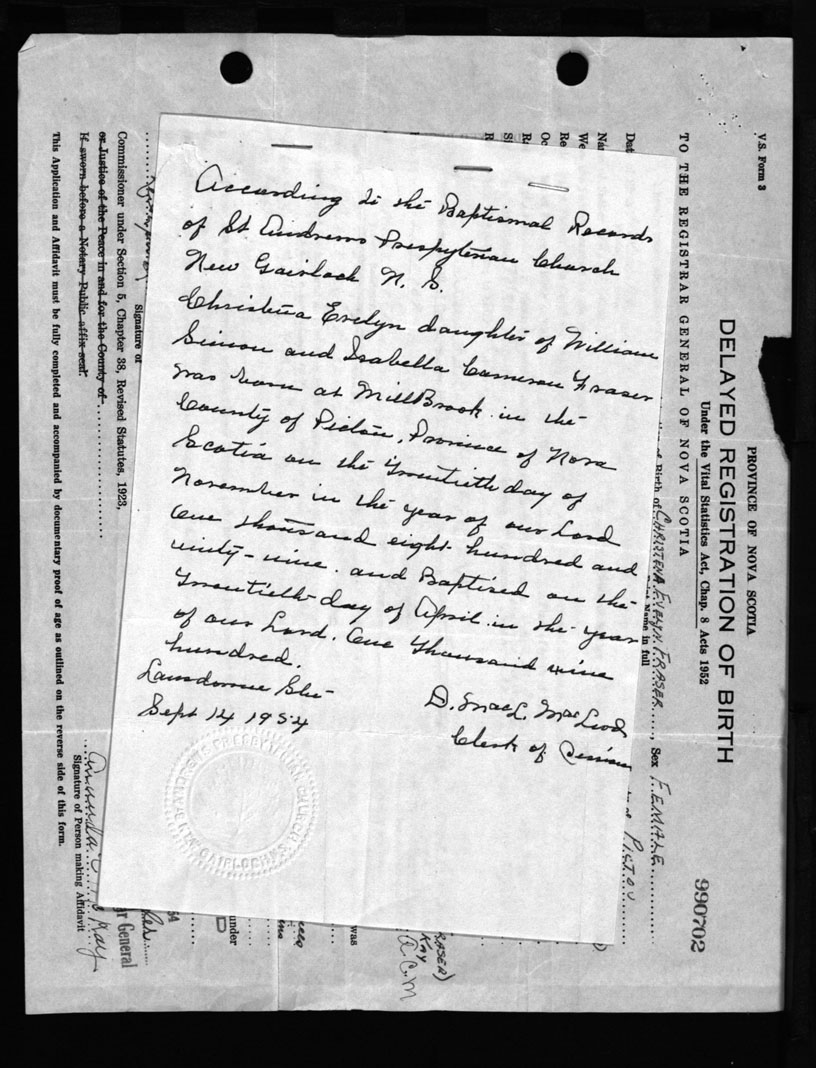 According to the Baptismal Records
of St Andrews Presbyterian Church
New Gairloch N. S.
Christina Evelyn daughter of William
Simon and Isabella Cameron Fraser
was born at MillBrook in the
County of Pictou, Province of Nova
Scotia on the Twentieth day of
November in the year of our Lord
One thousand eight hundred and
ninty-nine. and Baptised on the
Twentieth day of April in the year
of our Lord. One Thousand nine
hundred.
Lansdowne Stn
Sept 14 1954
D. MacL. MacLeod
Clerk of Session
ST ANDREWS PRESBYTERIAN CHURCH
NEW GAIRLOCH N.S.
V.S. Form 3
PROVINCE OF NOVA SCOTIA
DELAYED REGISTRATION OF BIRTH
Under the Vital Statistics Act, Chap. 8 Acts 1952
990702
TO THE REGISTRAR GENERAL OF NOVA SCOTIA
of Birth of CHRISTENA EVELYN FRASER, Sex FEMALE
Name in full
PICTOU
Dat
Na
We
Re
Oc
R
Si
R
was
FRASER)
KAY
A.C.M
under
D
54
ar General
Signature of
Commissioner under Section 5, Chapter 38, Revised Statutes, 1923,
or Justice of the Peace in and for the County of
If sworn before a Notary Public affix seal.
Amanda Kay
Signature of Person making Affidavit
This Application and Affidavit must be fully completed and accompanied by documentary proof of age as outlined on the reverse side of this form.